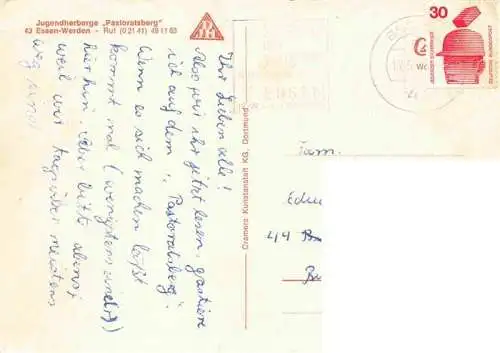 Jugendherberge „Pastoratsberg"
43 Essen-Werden - Ruf (0 21 41) 49 11 63
Ihr Lieben alle!
Also wie ihr jetzt lesen, gastiere
ich auf dem „Pastoratsberg".
Wenn es sich machen läßt
kommt mal (wenigstens einer))
hier hin. Aber bitte abends
weil wir tagsüber meistens
weg sind.
Cramers Kunstanstalt KG, Dortmund
30
DEUTSCHE BUNDESPOST
Fam.
44